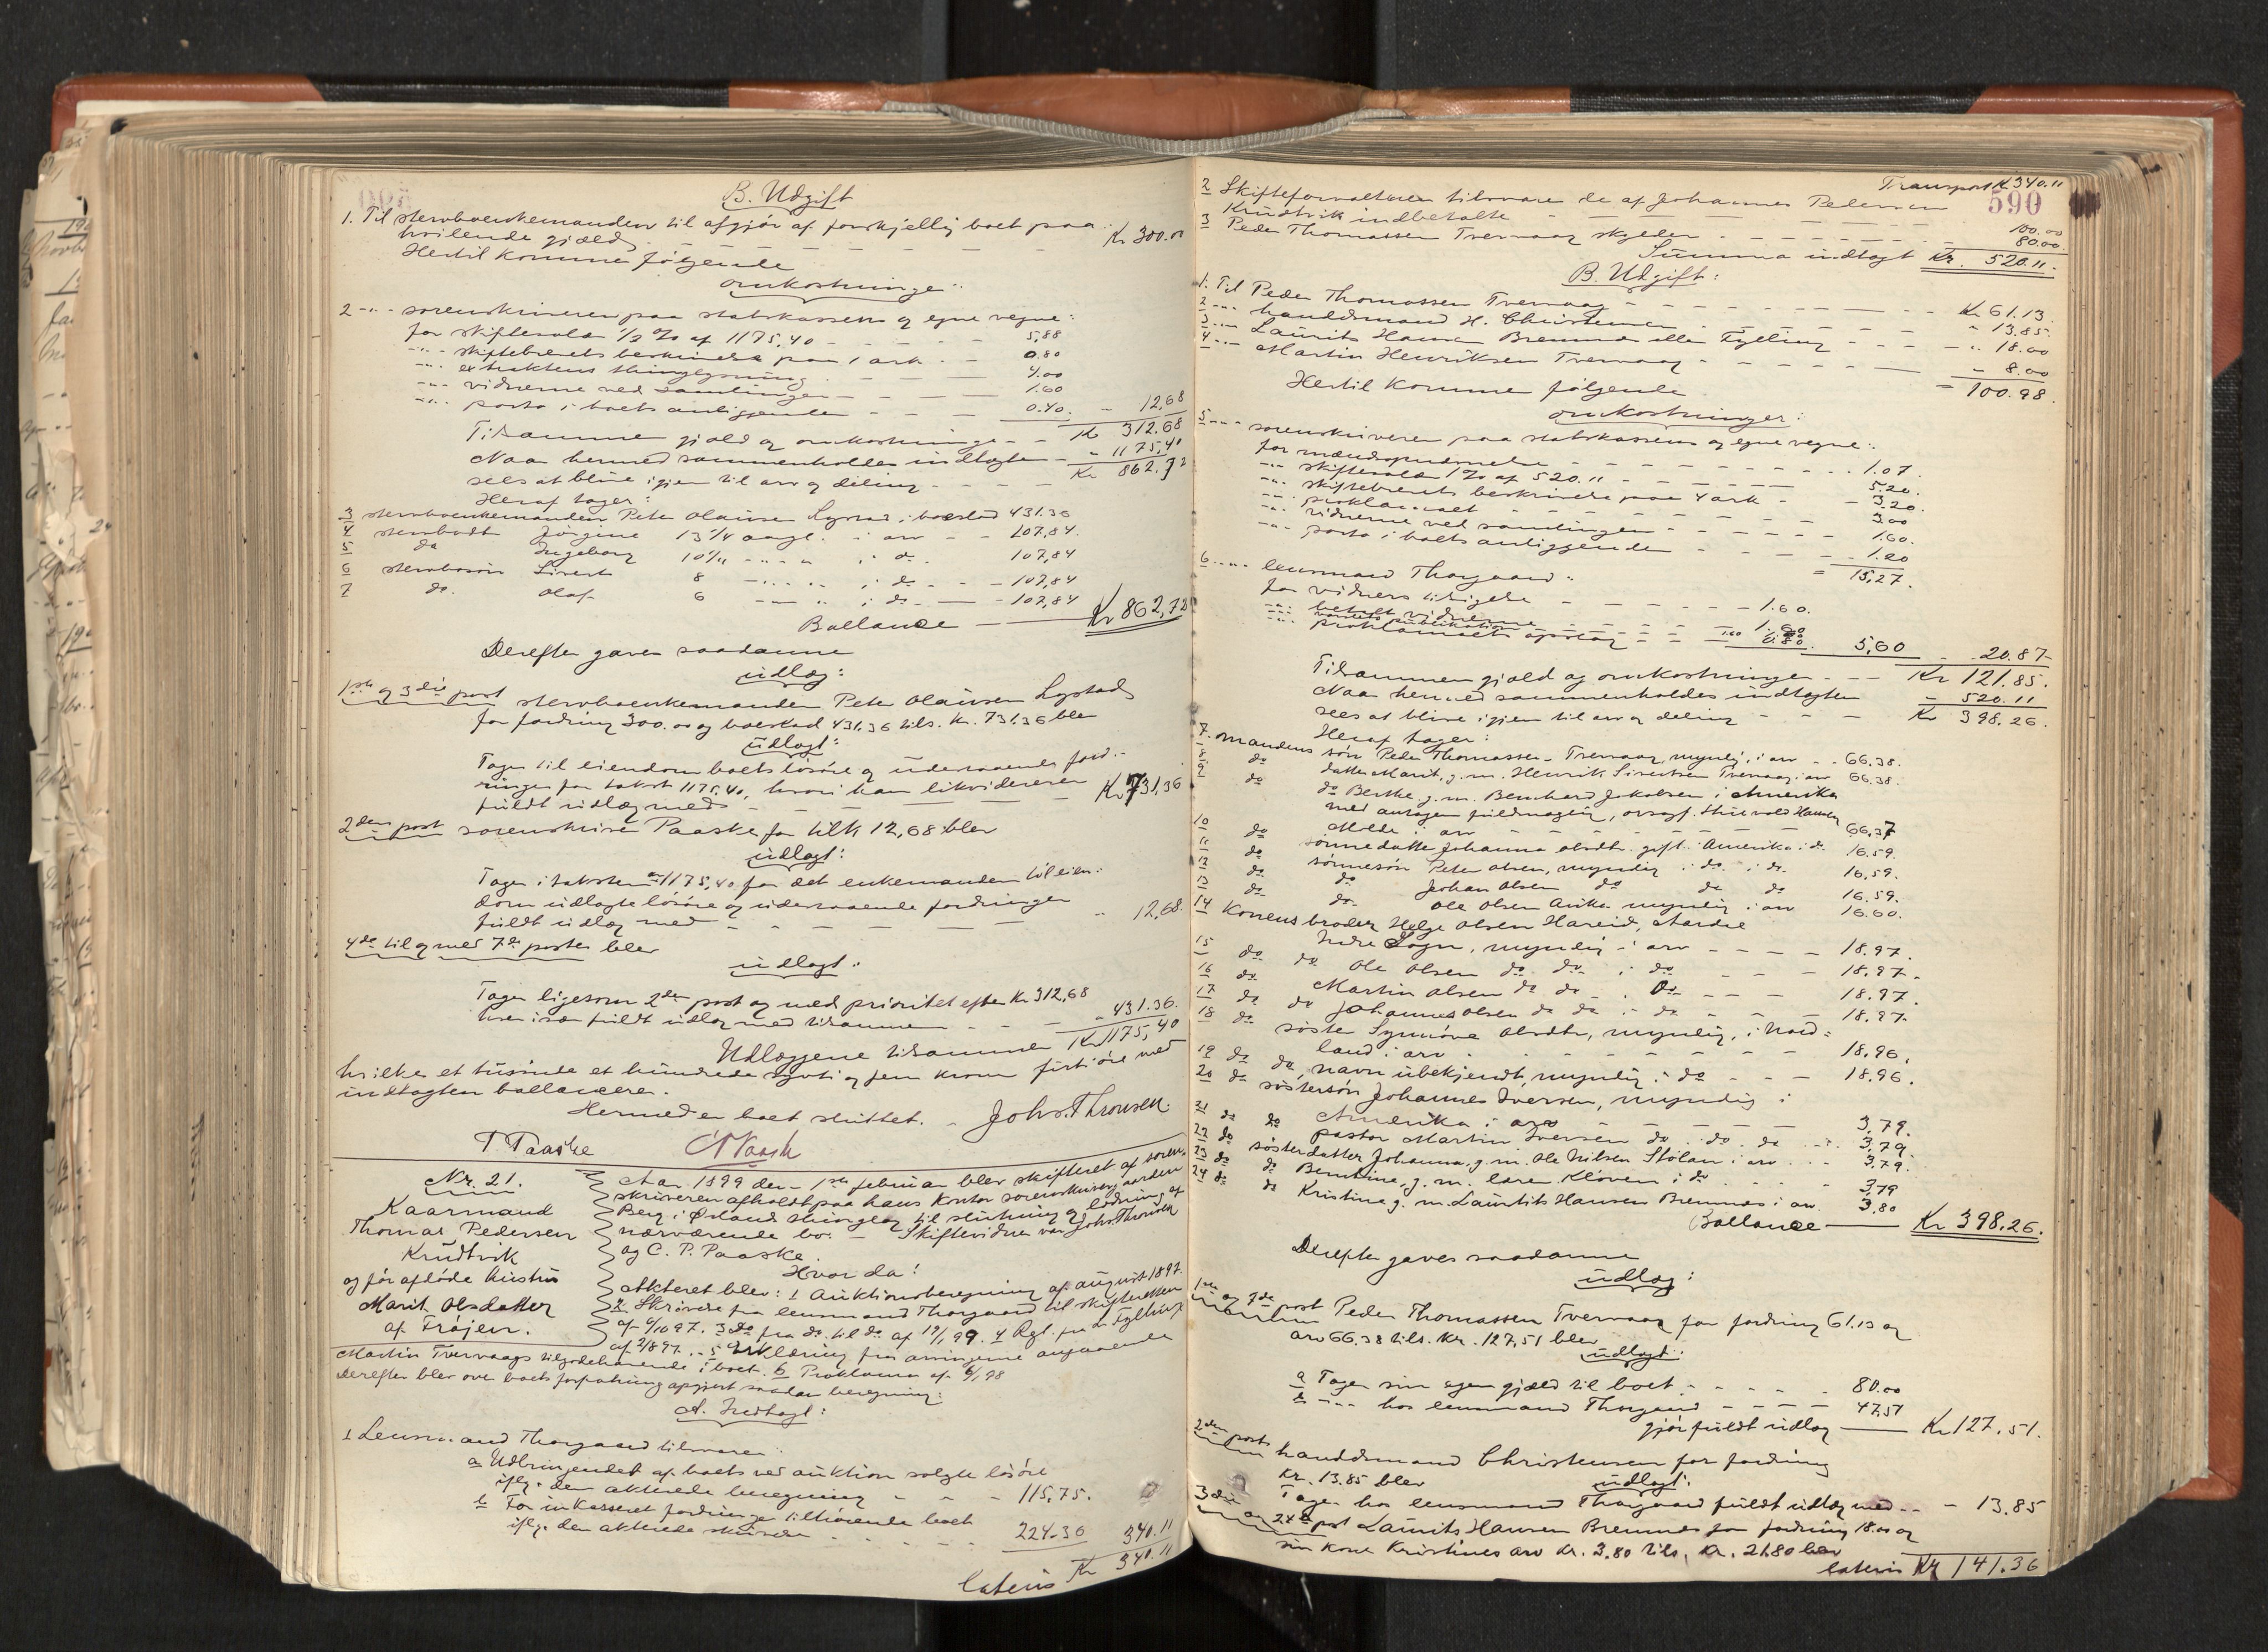 B. Udgift
1. Til stervboenkemanden til afgjør af forskjellig boet paa-
hvilende gjæld - - - - Kr 300.00
Hertil kommer følgende
omkostninger:
2 -"- sorenskriveren paa statskassens og egne vegne:
for skiftesalær 1/2 % af 1175,40 - - - 5,88
-"- skiftebrevets beskrivelse paa 1 ark - - 0.80
-"- extraktens thinglysning - - - 4.00
-"- vidnerne ved samlingen - - - 1.60
-"- porto i boets anliggender - - - 0.40. - 12,68
Tilsammen gjæld og omkostninger - - Kr 312.68
Naar hermed sammenholdes indtægten - - " 1175,40
sees at blive igjen til arv og deling - - - Kr 862.72
Heraf tager:
3 stervboenkemanden Peter Olausen Lystad i boeslod 431.36
4 stervbodt Jørgine 13 1/4 aargl. i arv - - 107,84.
5 do Ingeborg 10 1/2 -"- " i do. 107,84
6 stervbosøn Sivert 8 -"- " i do - - 107,84
7 do. Olaf 6 -"- " i do - - 107,84
Ballance - Kr 862,72
Derefter gaves saadanne
udlæg:
1ste og 3die post stervboenkemanden Peter Olausen Lystad
for fordring 300.00 og boeslod 431.36 tils. Kr. 731.36 blev
udlagt:
Tager til eiendom boets løsøre og udestaaende ford-
ringer for takst 1175,40, hvori han likviderer
fuldt udlæg med - - - Kr 731,36
2den post sorenskriver Paaske for tilk 12,68 blev
udlagt:
Tager i taksten 1175,40 for det enkemanden til eien-
dom udlagte løsøre og udestaaende fordringer
fuldt udlæg med - - - " 12,68.
4de til og med 7de poster blev
udlagt:
Tager ligesom 2den post og med prioritet efter Kr 312,68
hver især fuldt udlæg med tilsammen - - - 431.36.
Udlæggene tilsammen Kr 1175,40
hvilke et tusinde et hundrede sytti og fem kroner firti øre med
indtægten ballancerer.
Hermed er boet sluttet. - Johs. Thronsen.
T Paaske CPPaaske
Nr. 21.
Kaarmand
Thomas Pedersen
Krudtvik
og før afdøde hustru
Marit Olsdatter
af Frøjen.
Aar 1899 den 1ste februar blev skifteret af soren-
skriveren afholdt paa hans kontor sorenskrivergaarden
Berg i Ørlands thinglag til slutning og lodning af
nærværende bo. - Skiftevidner var Johs. Thronsen
og C. P. Paaske.
Hvor da:
Akteret blev: 1 Auktionsberegning af august 1897.
2 Skrivelse fra lensmand Thorgaard til skifteretten
af 6/10 97. 3 do fra do til do af 19/1 99. 4 Rgl. fra L. Fylling
af 2/8 97. - 5 Erklæring fra arvingerne angaaende
Martin Tvervaags tilgodehavende i boet. 6 Proklama af 6/1 98
Derefter blev over boets forfatning opgjort saadan beregning:
A. Indtægt:
1 Lensmand Thorgaard tilsvarer:
a Udbringendet af boets ved auktion solgte løsøre
iflg. den akterede beregning - - - 115,75.
b For inkasseret fordringer tilhørende boet
iflg. den akterede skrivelse - - - 224.36 340.11
lateris Kr 340.11
590
Transport Kr 340.11
2 Skifteforvalteren tilsvarer de af Johannes Pedersen
Krudtvik indbetalte - - - 100.00
3 Peder Thomassen Tvervaag skylder - - - 80.00.
Summa indtægt Kr. 520.11.
B. Udgift:
1. Til Peder Thomassen Tvervaag - - - Kr 61.13
2 -"- handelsmand H. Christensen - - - " 13.85.
3 -"- Laurits Hansen Bremnes eller Fylling - - - " 18.00
4 -"- Martin Henriksen Tvervaag - - - " 8.00
= 100.98.
Hertil kommer følgende
omkostninger:
5 -"- sorenskriveren paa statskassens og egne vegne:
for mændsopnævnelse - - - 1.07.
-"- skiftesalær 1% af 520.11 - - - 5.20.
-"- skiftebrevets beskrivelse paa 4 ark - - 3.20.
-"- proklamaet - - - 3.00
-"- vidnerne ved samlingen - - - 1.60.
-"- porto i boets anliggender - - - 1.20
= 15,27.
6 -"- lensmand Thorgaard:
for vidners tilsigelse - - - 1.60.
-"- betalt vidnerne - - - 1.60
-"- proklamaets opslag - - 0.80. 5,60 - 20.87
Tilsammen gjæld og omkostninger - - Kr 121.85.
Naar hermed sammenholdes indtægten - 520.11
sees at blive igjen til arv og deling - - - Kr 398.26.
Heraf tager:
7. mandens søn Peder Thomassen Tvervaag, myndig, i arv - - 66.38.
8 do datter Marit, g. m. Henrik Sivertsen Tvervaag i arv 66.38.
9 do do Berthe g. m. Bernhard Jakobsen i Amerika
med antagen fuldmægtig, orsagf. Thorvald Hansen
Molde i arv - - - 66.37
10 do sønnedatter Johanna olsdtr. gift i Amerika i do. 16.59.
11 do sønnesøn Peter olsen, myndig i do. i do. 16,59.
12 do do Johan Olsen do do do 16.59.
13 do do. Ole Olsen Anika myndig i arv 16.60.
14 Konens broder Helge Olsen Hareid, Aardal
Indre Sogn, myndig i arv - - - 18.97.
15 do do Ole Olsen do do i do - - - 18.97.
16 do Martin Olsen do do i do - - - 18.97.
17 do do Johannes Olsen do do i do - - - 18.97.
18 do søster Synnøve Olsdtr, myndig, i Nord-
land i arv - - - 18.96.
19 do do, navn ubekjendt, myndig i do - - - 18.96.
20 do søstersøn Johannes Iversen, myndig i
Amerika i arv - - - 3,79.
21 do do pastor Martin Iversen do. do. do - - 3,79.
22 do søsterdatter Johanna, g. m. Ole Nilsen Stølan i arv - - 3,79.
23 do do Berntine, g. m. lærer Kløven i do - - - 3,79
24 do do Kristine g. m. Laurits Hansen Bremnes i arv 3,80
Ballance - Kr 398.26.
Derefter gaves saadanne
udlæg:
1ste og 7de post Peder Thomassen Tvervaag for fordring 61.13 og
arv 66.38 tils. Kr. 127,51 blev
udlagt:
a Tager sin egen gjæld til boet - - - 80.00
b -"- hos lensmand Thorgaard - - - 47,51
gjør fuldt udlæg - Kr 127.51.
2den posts handelsmand Christensen for fordring
Kr. 13.85 blev
udlagt:
Tager hos lensmand Thorgaard fuldt udlæg med - - - 13.85
3die og 24de post Laurits Hansen Bremnes for fordring 18.00 og
sin kone Kristines arv Kr. 3.80 tils. Kr. 21.80 blev
lateris Kr 141.36